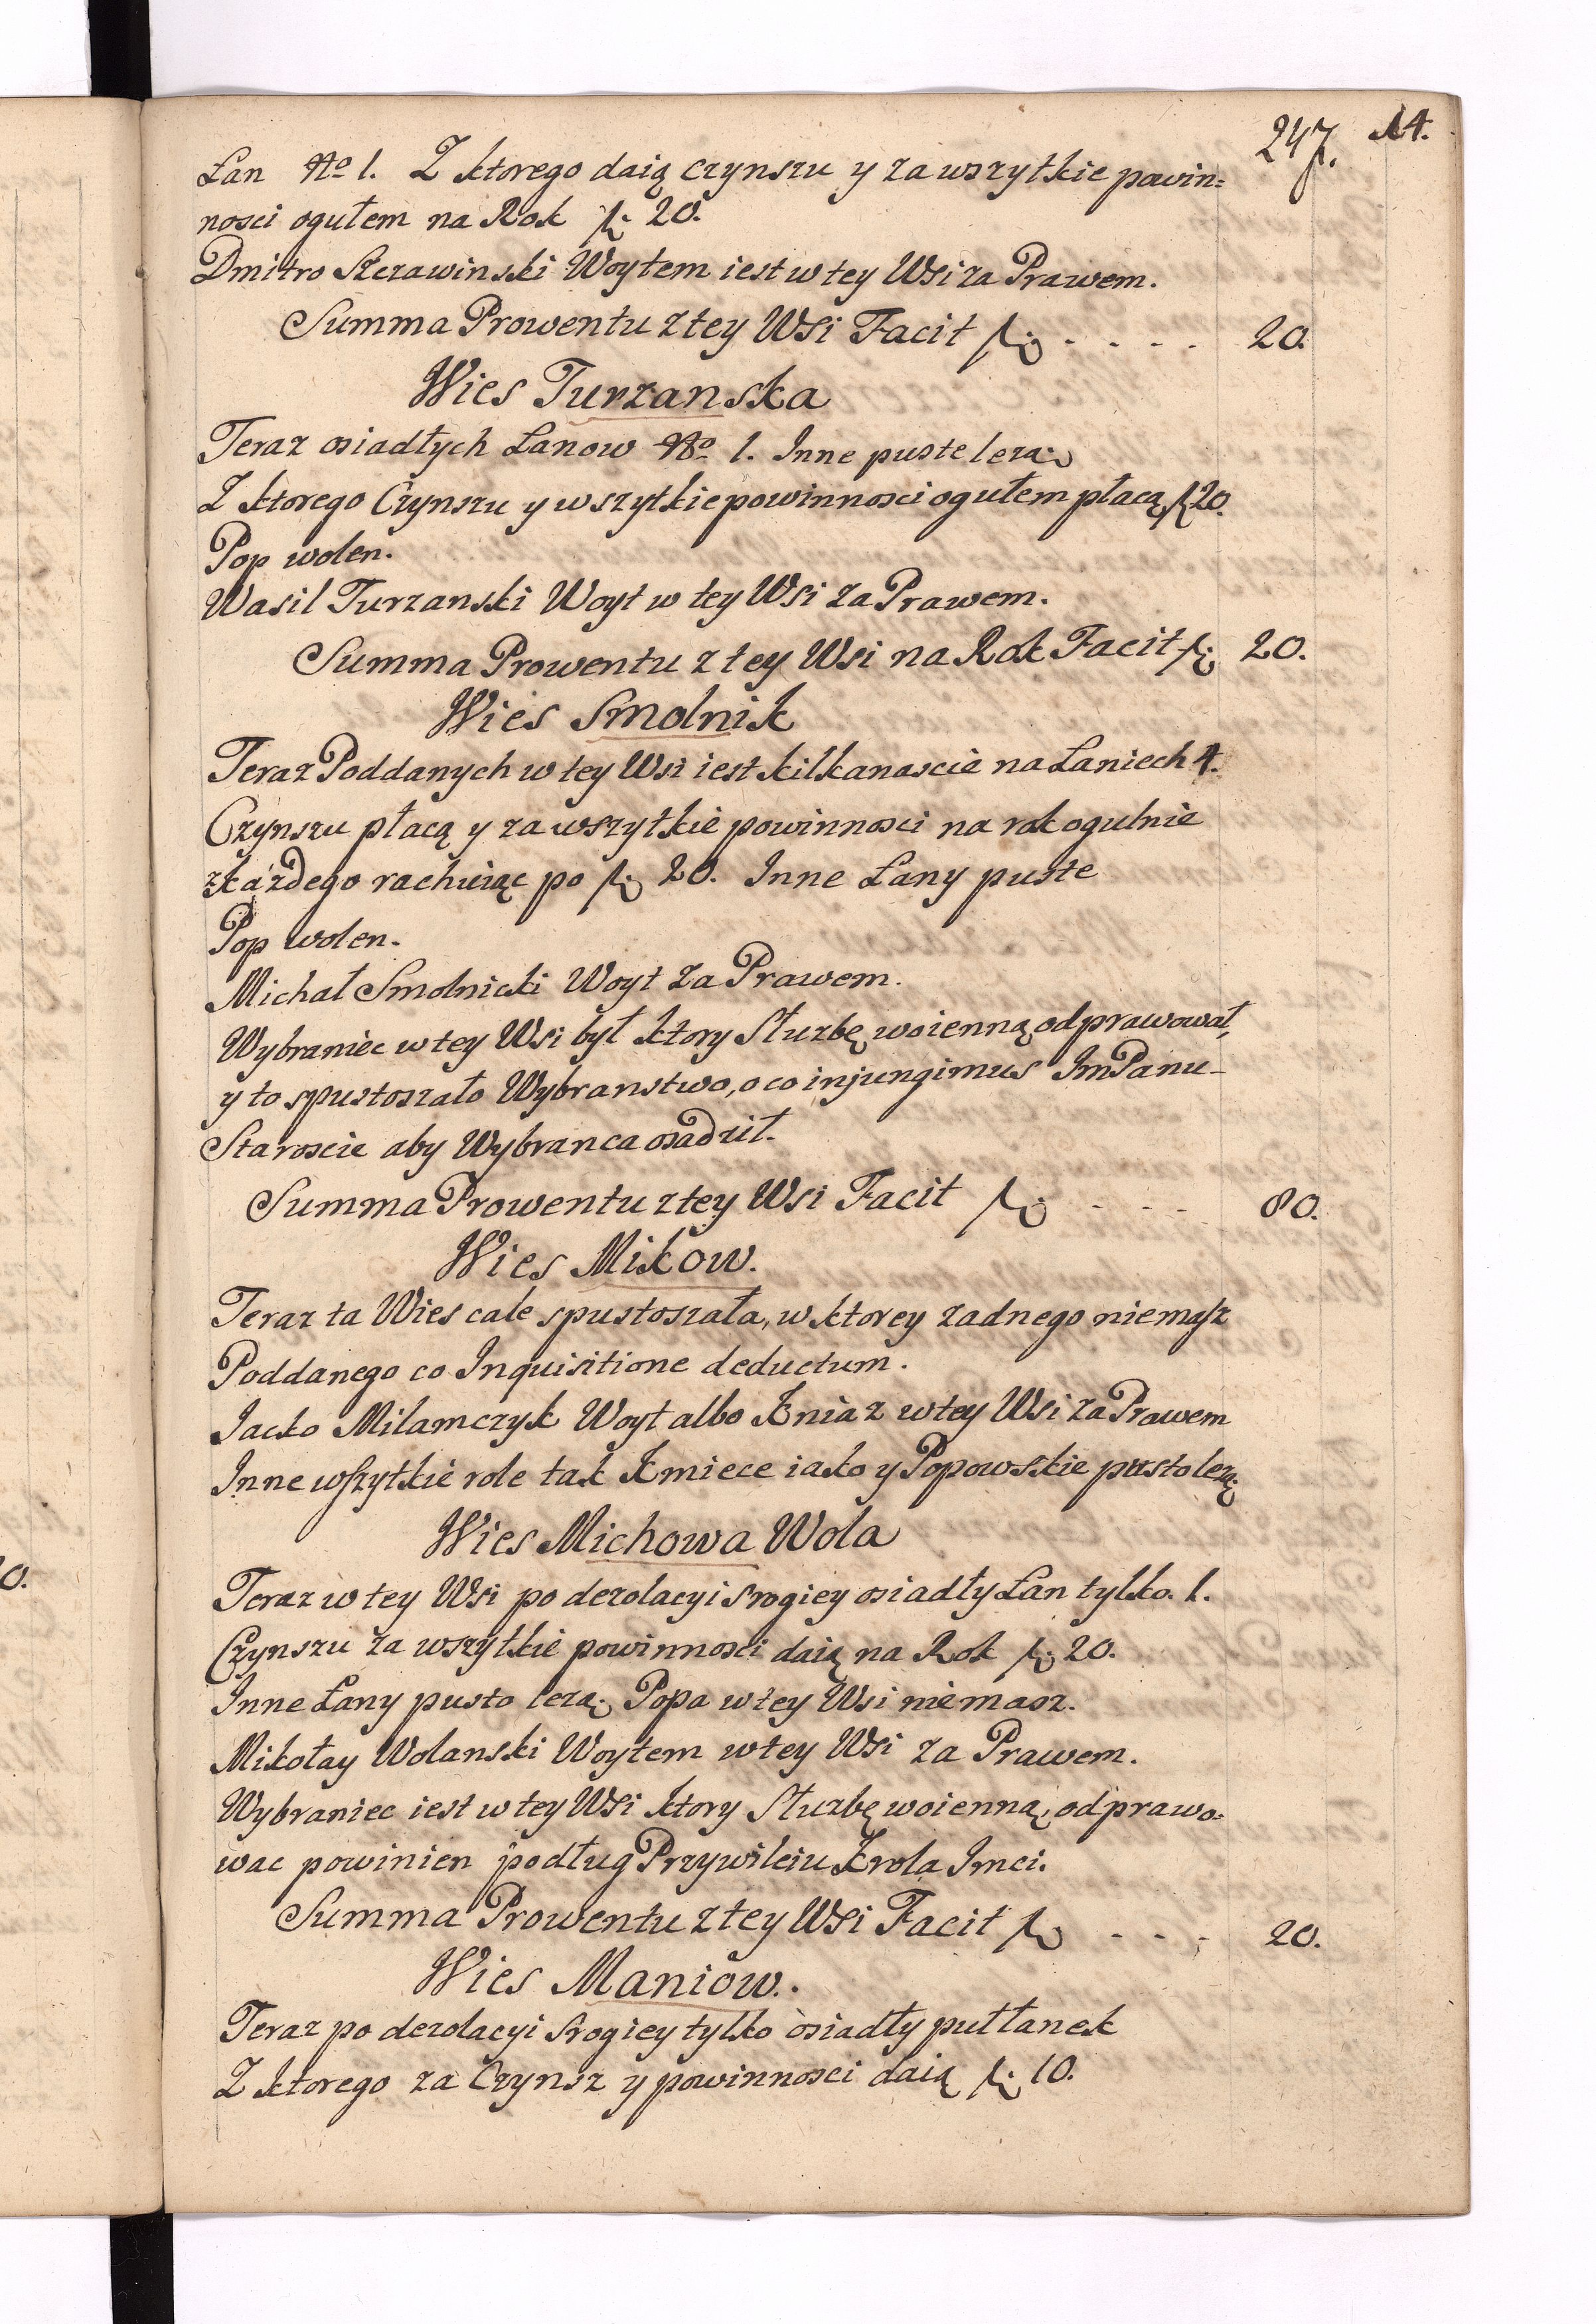 247. 14.
Łan No 1. Z ktorego daią czynszu y za wszytkie powin=
nosci ogułem na Rok f: 20.
Dmitro Szczawinski Woytem iest w tey Wsi za Prawem.
Summa Prowentu z tey Wsi Facit f: - - - - 20.
Wies Turzanska
Teraz osiadłych Łanow No 1. Inne puste lezą
Z ktorego Czynszu y wszytkie powinnosci ogułem płacą f 20.
Pop wolen.
Wasil Turzanski Woyt w tey Wsi za Prawem.
Summa Prowentu z tey Wsi na Rok Facit f: 20.
Wies Smolnik
Teraz Poddanych w tey Wsi iest kilkanascie na Łaniech 4.
Czynszu płacą y za wszytkie powinnosci na rok ogulnie
z każdego rachuiąc po f: 20. Inne Łany puste
Pop wolen.
Michał Smolnicki Woyt za Prawem.
Wybraniec w tey Wsi był ktory Służbę woienną odprawował,
y to spustoszało Wybranstwo, o co injungimus JmPanu-
Staroscie aby Wybranca osadził.
Summa Prowentu z tey Wsi Facit f: - - - 80.
Wies Mikow.
Teraz ta Wies cale spustoszała, w ktorey zadnego niemasz
Poddanego co Inquisitione deductum.
Jacko Milamczyk Woyt albo Kniaz w tey Wsi za Prawem
Inne wszytkie role tak Kmiece iako y Popowskie pusto lezą
Wies Michowa Wola
Teraz w tey Wsi po dezolacyi srogiey osiadły Łan tylko. 1.
Czynszu za wszytkie powinnosci daią na Rok f: 20.
Inne Łany pusto lezą. Popa w tey Wsi niemasz.
Mikołay Wolanski Woytem w tey Wsi za Prawem.
Wybraniec iest w tey Wsi ktory Służbę woienną odprawo=
wac powinien podług Przywileiu Krola Jmci.
Summa Prowentu z tey Wsi Facit f: - - - 20.
Wies Maniow.
Teraz po dezolacyi srogiey tylko osiadły puł łanek
Z ktorego za Czynsz y powinnosci daią f: 10.